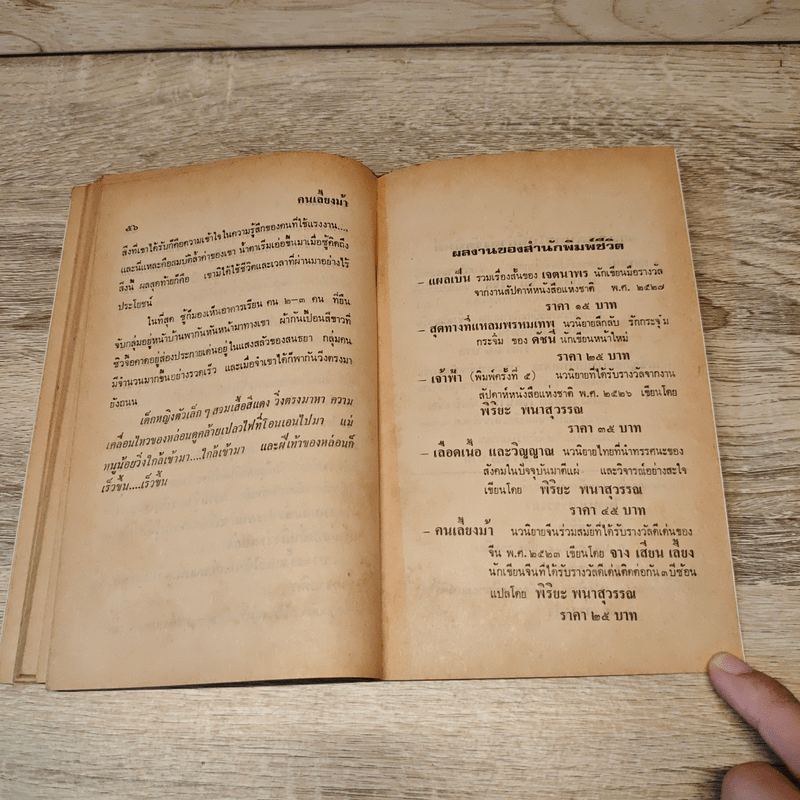 คนเลี้ยงม้า
๕๖
สิ่งที่เขาได้รับก็คือความเข้าใจในความรู้สึกของคนที่ใช้แรงงาน....
และนี่แหละคือสมบัติล้ำค่าของเขา น้ำตาเริ่มเอ่อขึ้นมาเมื่อซู้คิดถึง
สิ่งนี้ ผลสุดท้ายก็คือ เขามิได้ใช้ชีวิตและเวลาที่ผ่านมาอย่างไร้
ประโยชน์
ในที่สุด ซู้ก็มองเห็นอาคารเรียน คน ๒-๓ คน ที่ยืน
จับกลุ่มอยู่หน้าบ้านพากันหันหน้ามาทางเขา ผ้ากันเปื้อนสีขาวที่
ซิวจือคาดอยู่ส่องประกายเด่นอยู่ในแสงสลัวของสนธยา กลุ่มคน
มีจำนวนมากขึ้นอย่างรวดเร็ว และเมื่อจำเขาได้ก็พากันวิ่งตรงมา
ยังถนน
เด็กหญิงตัวเล็ก ๆ สวมเสื้อสีแดง วิ่งตรงมาหา ความ
เคลื่อนไหวของหล่อนดูคล้ายเปลวไฟที่โอนเอนไปมา แม่
หนูน้อยวิ่งใกล้เข้ามา....ใกล้เข้ามา และฝีเท้าของหล่อนก็
เร็วขึ้น....เร็วขึ้น
ผลงานของสำนักพิมพ์ชีวิต
– แผลเป็น รวมเรื่องสั้นของ เจตนาพร นักเขียนมือรางวัล
จากงานสัปดาห์หนังสือแห่งชาติ พ.ศ. ๒๕๒๗
ราคา ๑๕ บาท
– สุดทางที่แหลมพรหมเทพ นวนิยายลึกลับ รักกระจุ๋ม
กระจิ๋ม ของ ดัชนี นักเขียนหน้าใหม่
ราคา ๒๕ บาท
– เจ้าฟ้า (พิมพ์ครั้งที่ ๕) นวนิยายที่ได้รับรางวัลจากงาน
สัปดาห์หนังสือแห่งชาติ พ.ศ. ๒๕๒๖ เขียนโดย
พิริยะ พนาสุวรรณ
ราคา ๓๕ บาท
– เลือดเนื้อ และวิญญาณ นวนิยายไทยที่นำทรรศนะของ
สังคมในปัจจุบันมาตีแผ่ และวิจารณ์อย่างสะใจ
เขียนโดย พิริยะ พนาสุวรรณ
ราคา ๔๕ บาท
– คนเลี้ยงม้า นวนิยายจีนร่วมสมัยที่ได้รับรางวัลดีเด่นของ
จีน พ.ศ. ๒๕๒๓ เขียนโดย จาง เสียน เลี้ยง
นักเขียนจีนที่ได้รับรางวัลดีเด่นติดต่อกัน ๓ ปีซ้อน
แปลโดย พิริยะ พนาสุวรรณ
ราคา ๒๕ บาท